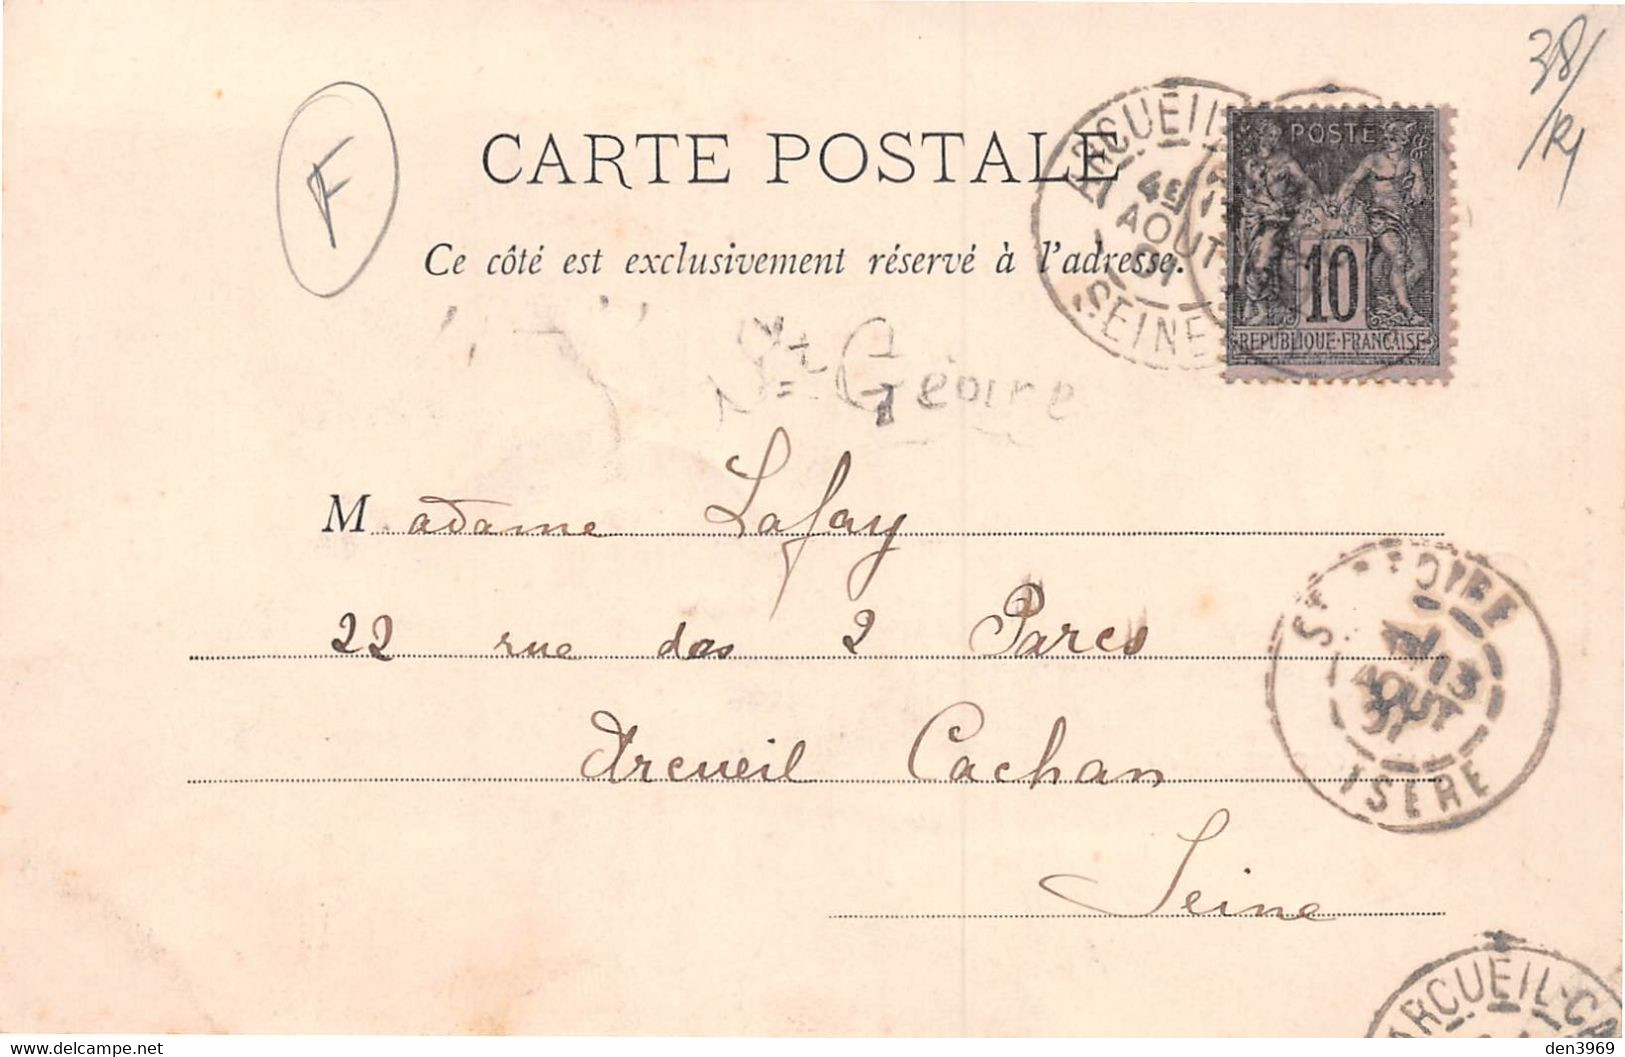 38/
/R1
F
CARTE POSTALE
Ce côté est exclusivement réservé à l'adresse.
ARCUEIL
4E
AOUT
01
SEINE
POSTE
10
REPUBLIQUE·FRANÇAISE
St Geoire
Madame Lafay
22 rue des 2 Parcs
Arcueil Cachan
Seine
13
AOUT
01
ISERE
ARCUEIL-CA
den3969